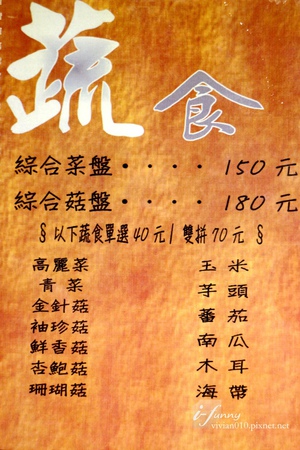 蔬食
綜合菜盤‧‧‧‧150元
綜合菇盤‧‧‧‧180元
§以下蔬食單選40元/雙拼70元 §
高麗菜 玉米
青菜 芋頭
金針菇 蕃茄
袖珍菇 南瓜
鮮香菇 木耳
杏鮑菇 海帶
珊瑚菇
i-funny
vivian010.pixnet.net